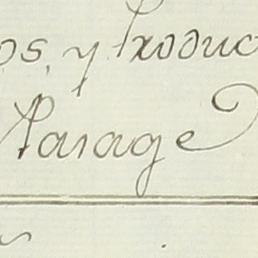 os, y Produc
Parage